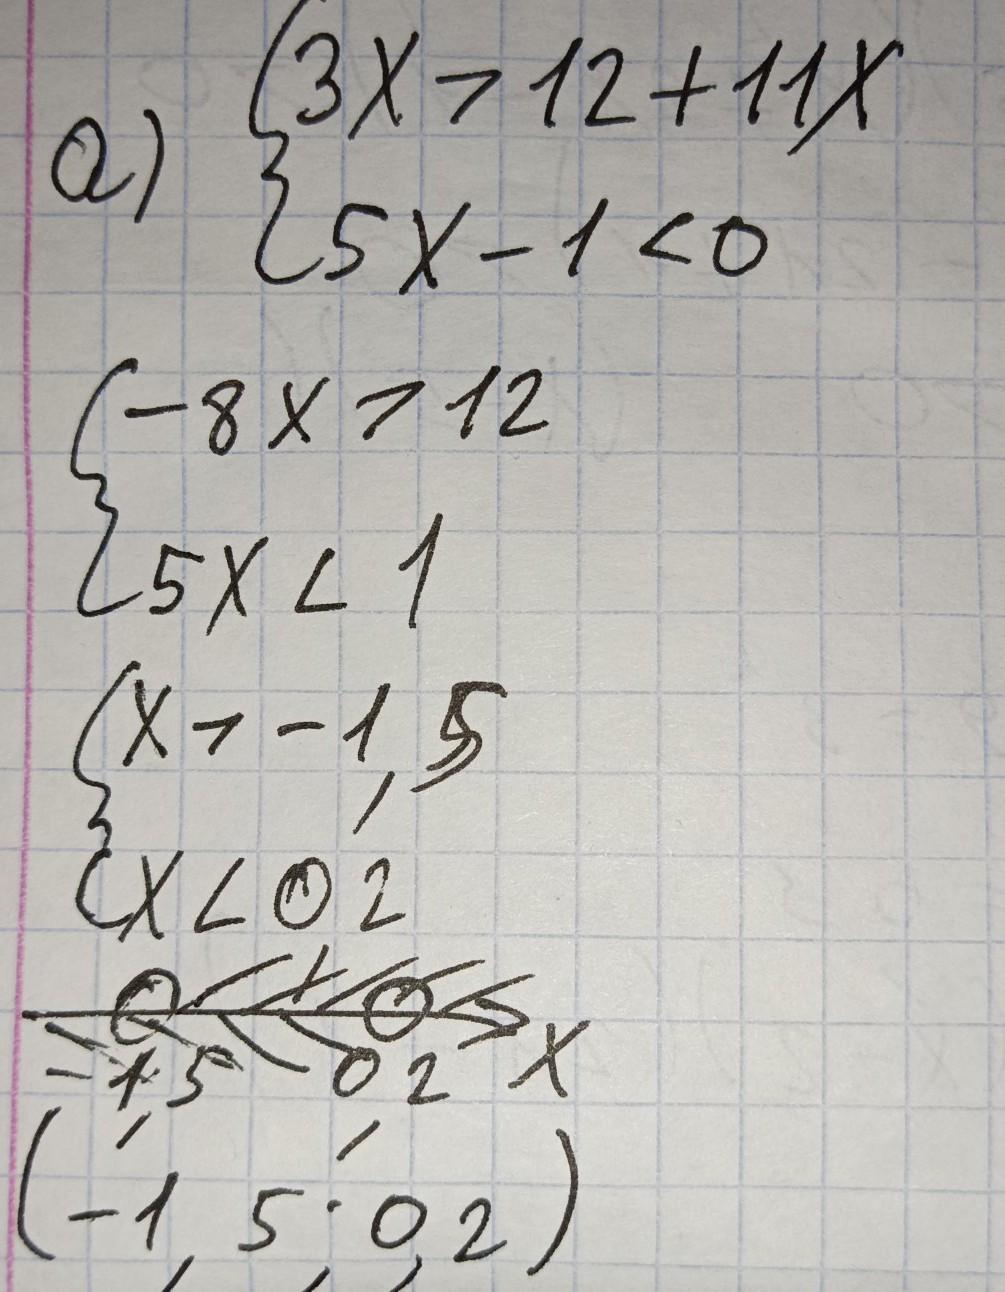 а) { 3x > 12 + 11x
5x - 1 < 0
{ -8x > 12
5x < 1
{ x > -1,5
x < 0,2
-1,5 0,2 x
(-1,5; 0,2)